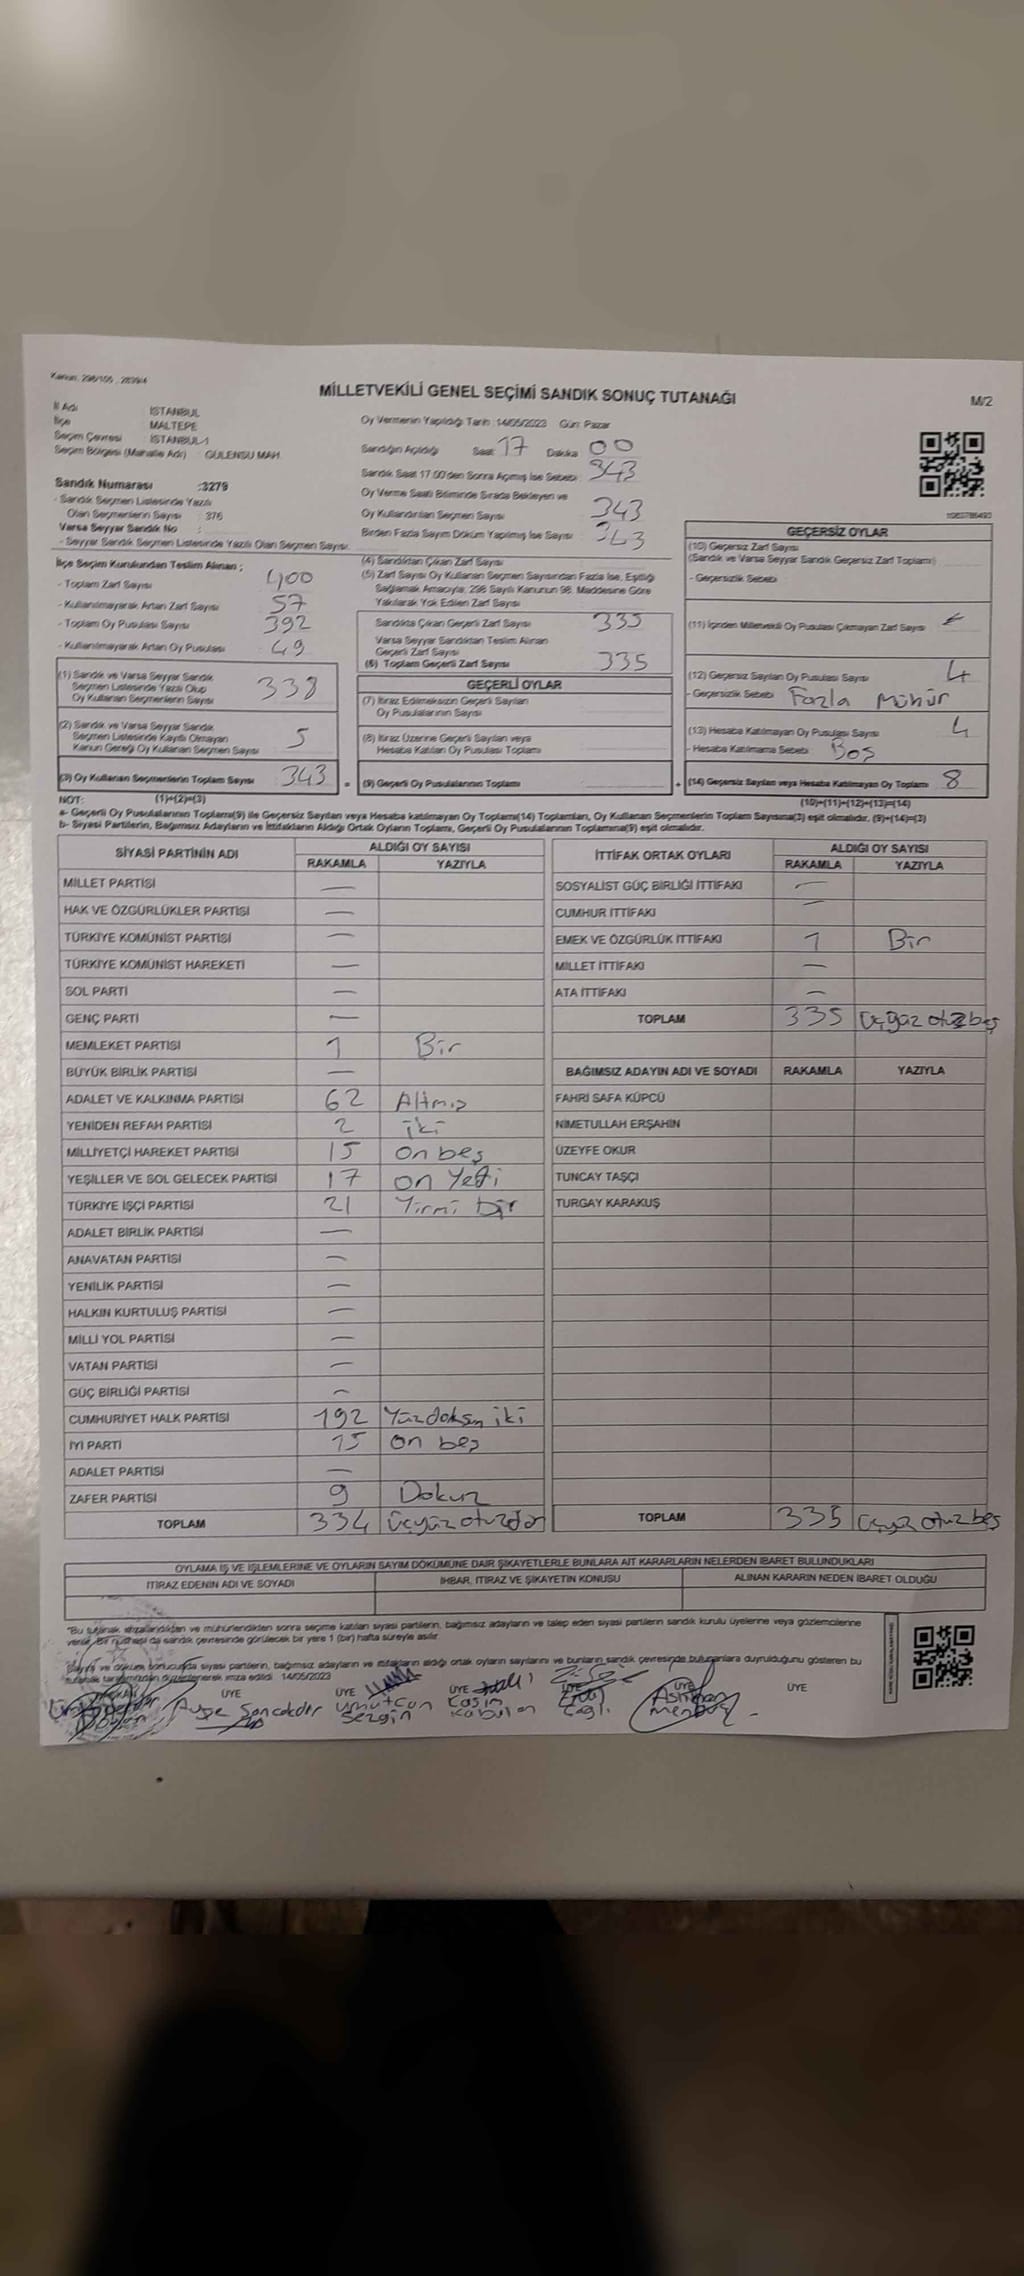 Kanun: 298/105 , 2839/4
MİLLETVEKİLİ GENEL SEÇİMİ SANDIK SONUÇ TUTANAĞI
M/2
İl Adı İSTANBUL
İlçe MALTEPE
Seçim Çevresi İSTANBUL-1
Seçim Bölgesi (Mahalle Adı) : GÜLENSU MAH.
Oy Vermenin Yapıldığı Tarih :14/05/2023 Gün: Pazar
Sandığın Açıldığı Saat 17 Dakika 00
Sandık Saat 17.00'den Sonra Açılmış İse Sebebi : 343
Oy Verme Saati Bitiminde Sırada Bekleyen ve
Oy Kullandırılan Seçmen Sayısı 343
Birden Fazla Sayım Döküm Yapılmış İse Sayısı : 343
Sandık Numarası :3279
- Sandık Seçmen Listesinde Yazılı
Olan Seçmenlerin Sayısı : 376
Varsa Seyyar Sandık No :
- Seyyar Sandık Seçmen Listesinde Yazılı Olan Seçmen Sayısı:
İlçe Seçim Kurulundan Teslim Alınan ;
- Toplam Zarf Sayısı 400
- Kullanılmayarak Artan Zarf Sayısı 57
- Toplam Oy Pusulası Sayısı 392
- Kullanılmayarak Artan Oy Pusulası 49
(1) Sandık ve Varsa Seyyar Sandık
Seçmen Listesinde Yazılı Olup
Oy Kullanan Seçmenlerin Sayısı 338
(2) Sandık ve Varsa Seyyar Sandık
Seçmen Listesinde Kayıtlı Olmayan
Kanun Gereği Oy Kullanan Seçmen Sayısı 5
(3) Oy Kullanan Seçmenlerin Toplam Sayısı 343 =
(4) Sandıktan Çıkan Zarf Sayısı
(5) Zarf Sayısı Oy Kullanan Seçmen Sayısından Fazla İse, Eşitliği
Sağlamak Amacıyla, 298 Sayılı Kanunun 98. Maddesine Göre
Yakılarak Yok Edilen Zarf Sayısı
Sandıkta Çıkan Geçerli Zarf Sayısı 335
Varsa Seyyar Sandıktan Teslim Alınan
Geçerli Zarf Sayısı
(6) Toplam Geçerli Zarf Sayısı 335
GEÇERLİ OYLAR
(7) İtiraz Edilmeksizin Geçerli Sayılan
Oy Pusulalarının Sayısı
(8) İtiraz Üzerine Geçerli Sayılan veya
Hesaba Katılan Oy Pusulası Toplamı
(9) Geçerli Oy Pusulalarının Toplamı +
GEÇERSİZ OYLAR
(10) Geçersiz Zarf Sayısı
(Sandık ve Varsa Seyyar Sandık Geçersiz Zarf Toplamı)
- Geçersizlik Sebebi
(11) İçinden Milletvekili Oy Pusulası Çıkmayan Zarf Sayısı
(12) Geçersiz Sayılan Oy Pusulası Sayısı 4
- Geçersizlik Sebebi Fazla Mühür
(13) Hesaba Katılmayan Oy Pusulası Sayısı 4
- Hesaba Katılmama Sebebi Boş
(14) Geçersiz Sayılan veya Hesaba Katılmayan Oy Toplamı 8
NOT: (1)+(2)=(3) (10)+(11)+(12)+(13)=(14)
a- Geçerli Oy Pusulalarının Toplamı(9) ile Geçersiz Sayılan veya Hesaba katılmayan Oy Toplamı(14) Toplamları, Oy Kullanan Seçmenlerin Toplam Sayısına(3) eşit olmalıdır. (9)+(14)=(3)
b- Siyasi Partilerin, Bağımsız Adayların ve İttifakların Aldığı Ortak Oyların Toplamı, Geçerli Oy Pusulalarının Toplamına(9) eşit olmalıdır.
SİYASİ PARTİNİN ADI ALDIĞI OY SAYISI
RAKAMLA YAZIYLA
MİLLET PARTİSİ —
HAK VE ÖZGÜRLÜKLER PARTİSİ —
TÜRKİYE KOMÜNİST PARTİSİ —
TÜRKİYE KOMÜNİST HAREKETİ —
SOL PARTİ —
GENÇ PARTİ —
MEMLEKET PARTİSİ 1 Bir
BÜYÜK BİRLİK PARTİSİ —
ADALET VE KALKINMA PARTİSİ 62 Altmış
YENİDEN REFAH PARTİSİ 2 iki
MİLLİYETÇİ HAREKET PARTİSİ 15 on beş
YEŞİLLER VE SOL GELECEK PARTİSİ 17 on Yedi
TÜRKİYE İŞÇİ PARTİSİ 21 Yirmi bir
ADALET BİRLİK PARTİSİ —
ANAVATAN PARTİSİ —
YENİLİK PARTİSİ —
HALKIN KURTULUŞ PARTİSİ —
MİLLİ YOL PARTİSİ —
VATAN PARTİSİ —
GÜÇ BİRLİĞİ PARTİSİ —
CUMHURİYET HALK PARTİSİ 192 Yüz doksan iki
İYİ PARTİ 15 on beş
ADALET PARTİSİ —
ZAFER PARTİSİ 9 Dokuz
TOPLAM 334 üçyüz otuzdört
İTTİFAK ORTAK OYLARI ALDIĞI OY SAYISI
RAKAMLA YAZIYLA
SOSYALİST GÜÇ BİRLİĞİ İTTİFAKI —
CUMHUR İTTİFAKI —
EMEK VE ÖZGÜRLÜK İTTİFAKI 1 Bir
MİLLET İTTİFAKI —
ATA İTTİFAKI —
TOPLAM 335 üçyüz otuzbeş
BAĞIMSIZ ADAYIN ADI VE SOYADI RAKAMLA YAZIYLA
FAHRİ SAFA KÜPCÜ
NİMETULLAH ERŞAHİN
ÜZEYFE OKUR
TUNCAY TAŞÇI
TURGAY KARAKUŞ
TOPLAM 335 üçyüz otuzbeş
OYLAMA İŞ VE İŞLEMLERİNE VE OYLARIN SAYIM DÖKÜMÜNE DAİR ŞİKAYETLERLE BUNLARA AİT KARARLARIN NELERDEN İBARET BULUNDUKLARI
İTİRAZ EDENİN ADI VE SOYADI İHBAR, İTİRAZ VE ŞİKAYETİN KONUSU ALINAN KARARIN NEDEN İBARET OLDUĞU
"Bu tutanak imzalandıktan ve mühürlendikten sonra seçime katılan siyasi partilerin, bağımsız adayların ve talep eden siyasi partilerin sandık kurulu üyelerine veya gözlemcilerine
verilir. Bir nüshası da sandık çevresinde görülecek bir yere 1 (bir) hafta süreyle asılır.
Sayım ve döküm sonucunda siyasi partilerin, bağımsız adayların ve ittifakların aldığı ortak oyların sayılarını ve bunların sandık çevresinde bulunanlara duyrulduğunu gösteren bu
tutanak tarafımızdan düzenlenerek imza edildi. 14/05/2023
BAŞKAN ÜYE ÜYE ÜYE ÜYE ÜYE ÜYE
Ayşe Umutcan Kasım
Sezgin